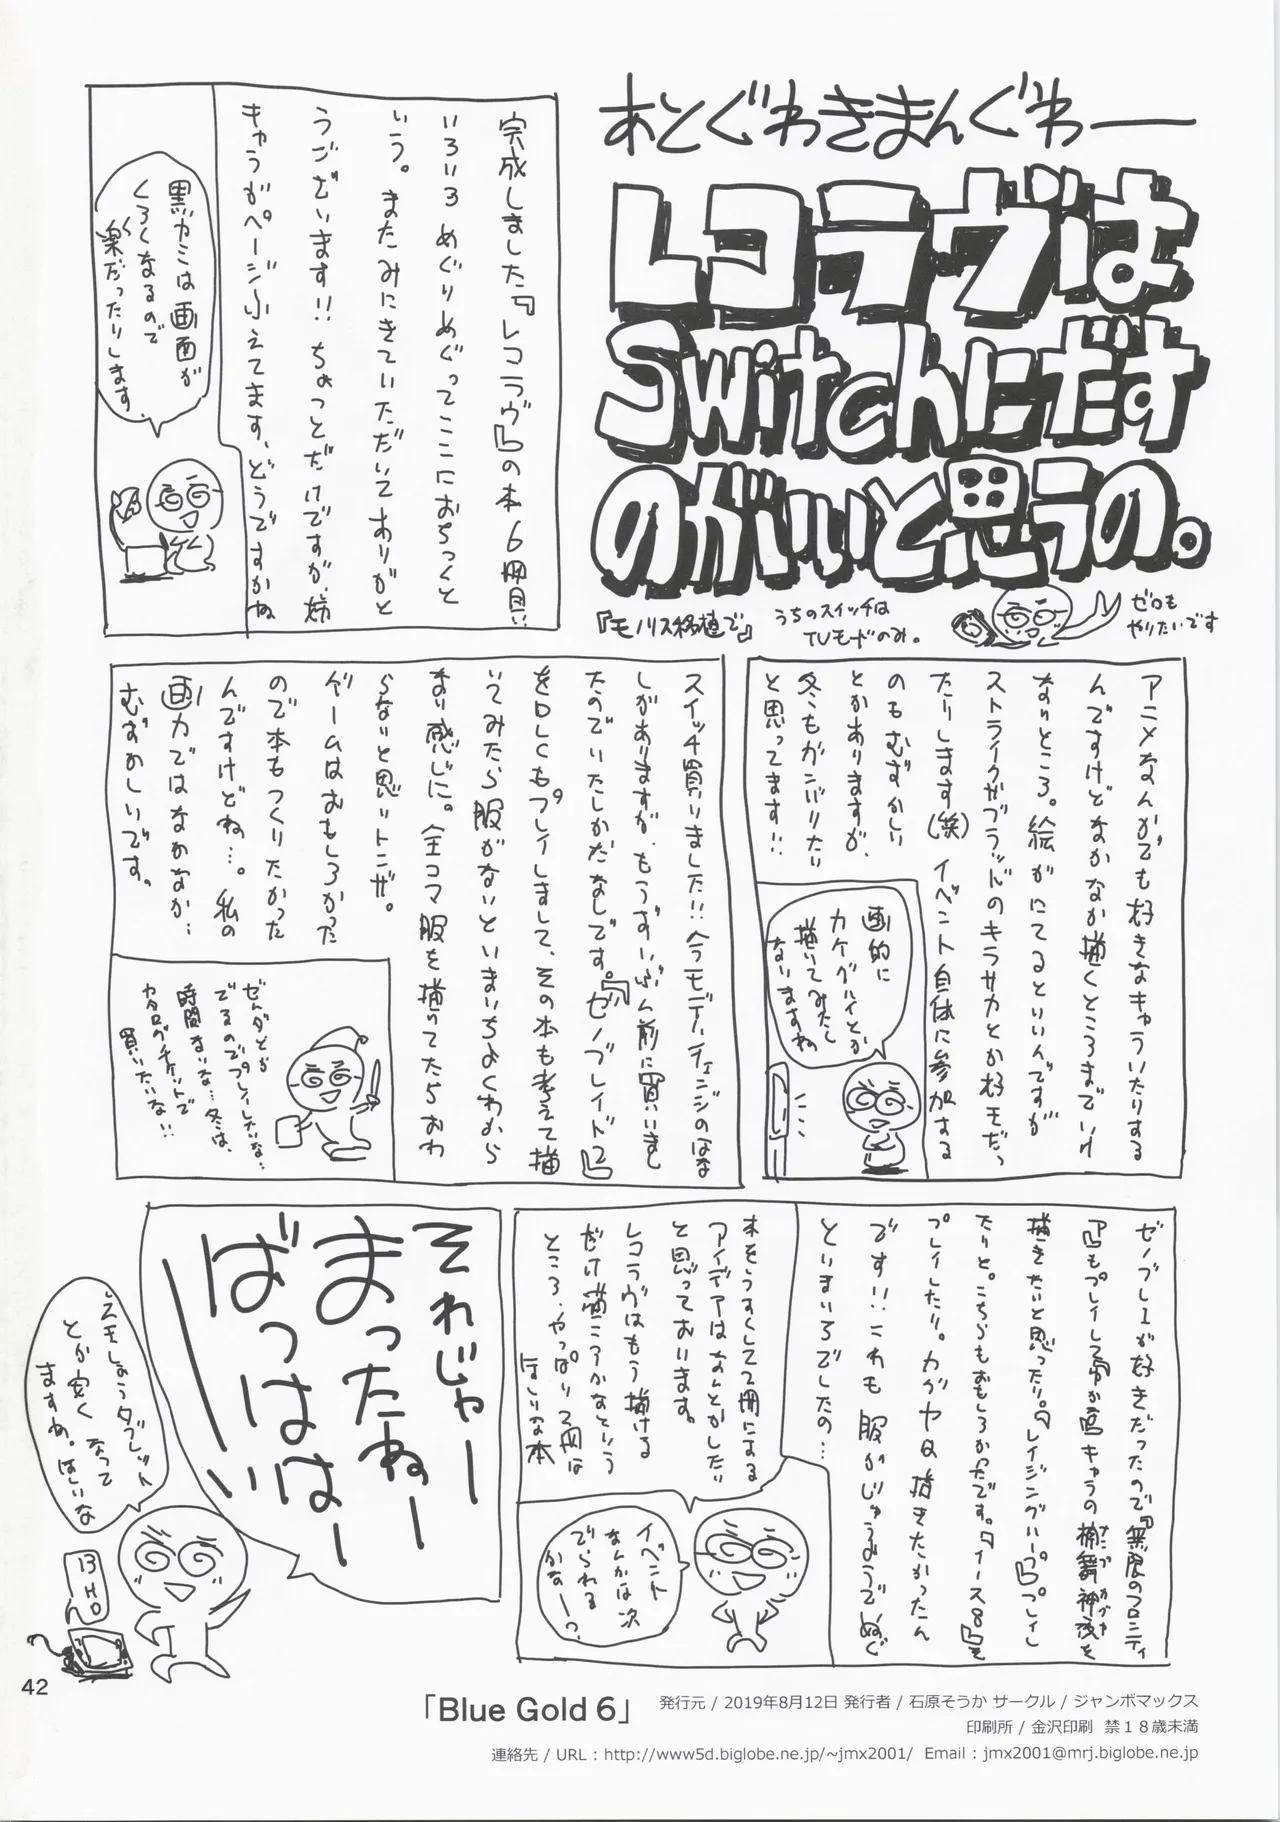 あとぐわきまんぐわー
レコラヴは
Switchにだす
のがいいと思うの。
『モノリス移植で』
うちのスイッチは
TVモードのみ。
ゼロも
やりたいです
完成しました『レコラヴ』の本6冊目い
いろいろめぐりめぐってここにおちつくと
いう。またみにきていただいてありがと
うございます!!ちょっとだけですが、姉
キャラがページふえてます、どうですかね
黒ガミは画面が
くろくなるので
楽だったりします
アニメなんかでも好きなキャラいたりする
んですけどなかなか描くところまでいけ
ないところ。絵がにてるといいんですが
ストライクザブラッドのキラサカとか好きだっ
たりします(笑)イベント自体に参加する
のもむずかしい
とかありますが、
冬もガンバりたい
と思ってます!!
画的に
カケグルイとか
描いてみたく
ないますね
スイッチ買いました!!今モデルチェンジのはな
しがありますが、もうずいぶん前に買いまし
たのでいたしかたなしです。『ゼノブレイド2』
をDLCもプレイしまして、その本も考えて描
いてみたら服がないといまいちよくわから
ない感じに。全コマ服を描いてたらおわ
らないと思いトンザ。
ゲームはおもしろかった
ので本もつくりたかった
んですけどね…。私の
画力ではなかなか…
むずかしいです。
ゼルダとか
でるのでプレイしたいな…
時間ないな…冬は、
カタログチケットで
買いたいな!!
ゼノブレIが好きだったので『無限のフロンティ
ア』もプレイして
描きたいと思ったり。『レイジングループ』プレイし
たりと。こちらもおもしろかったです。『イース8』を
プレイしたり。カグヤは描きたかったん
です!!これも服がじゅうようでぬぐ
といまいちでしたの…
本をうすくして2冊にする
アイデアはなんとかしたい
と思っております。
レコラヴはもう描ける
だけ描こうかなという
ところ、やっぱり2冊は
ほしいな本
イベント
なんかは次
でられる
かなー?
それじゃー
まったねー
ばっはは
ーい
とか安くなって
ますね。ほしいな
13
HD
42
「Blue Gold 6」
発行元 / 2019年8月12日 発行者 / 石原そうか サークル / ジャンボマックス
印刷所 / 金沢印刷 禁18歳未満
連絡先 / URL : http://www5d.biglobe.ne.jp/~jmx2001/ Email : jmx2001@mrj.biglobe.ne.jp